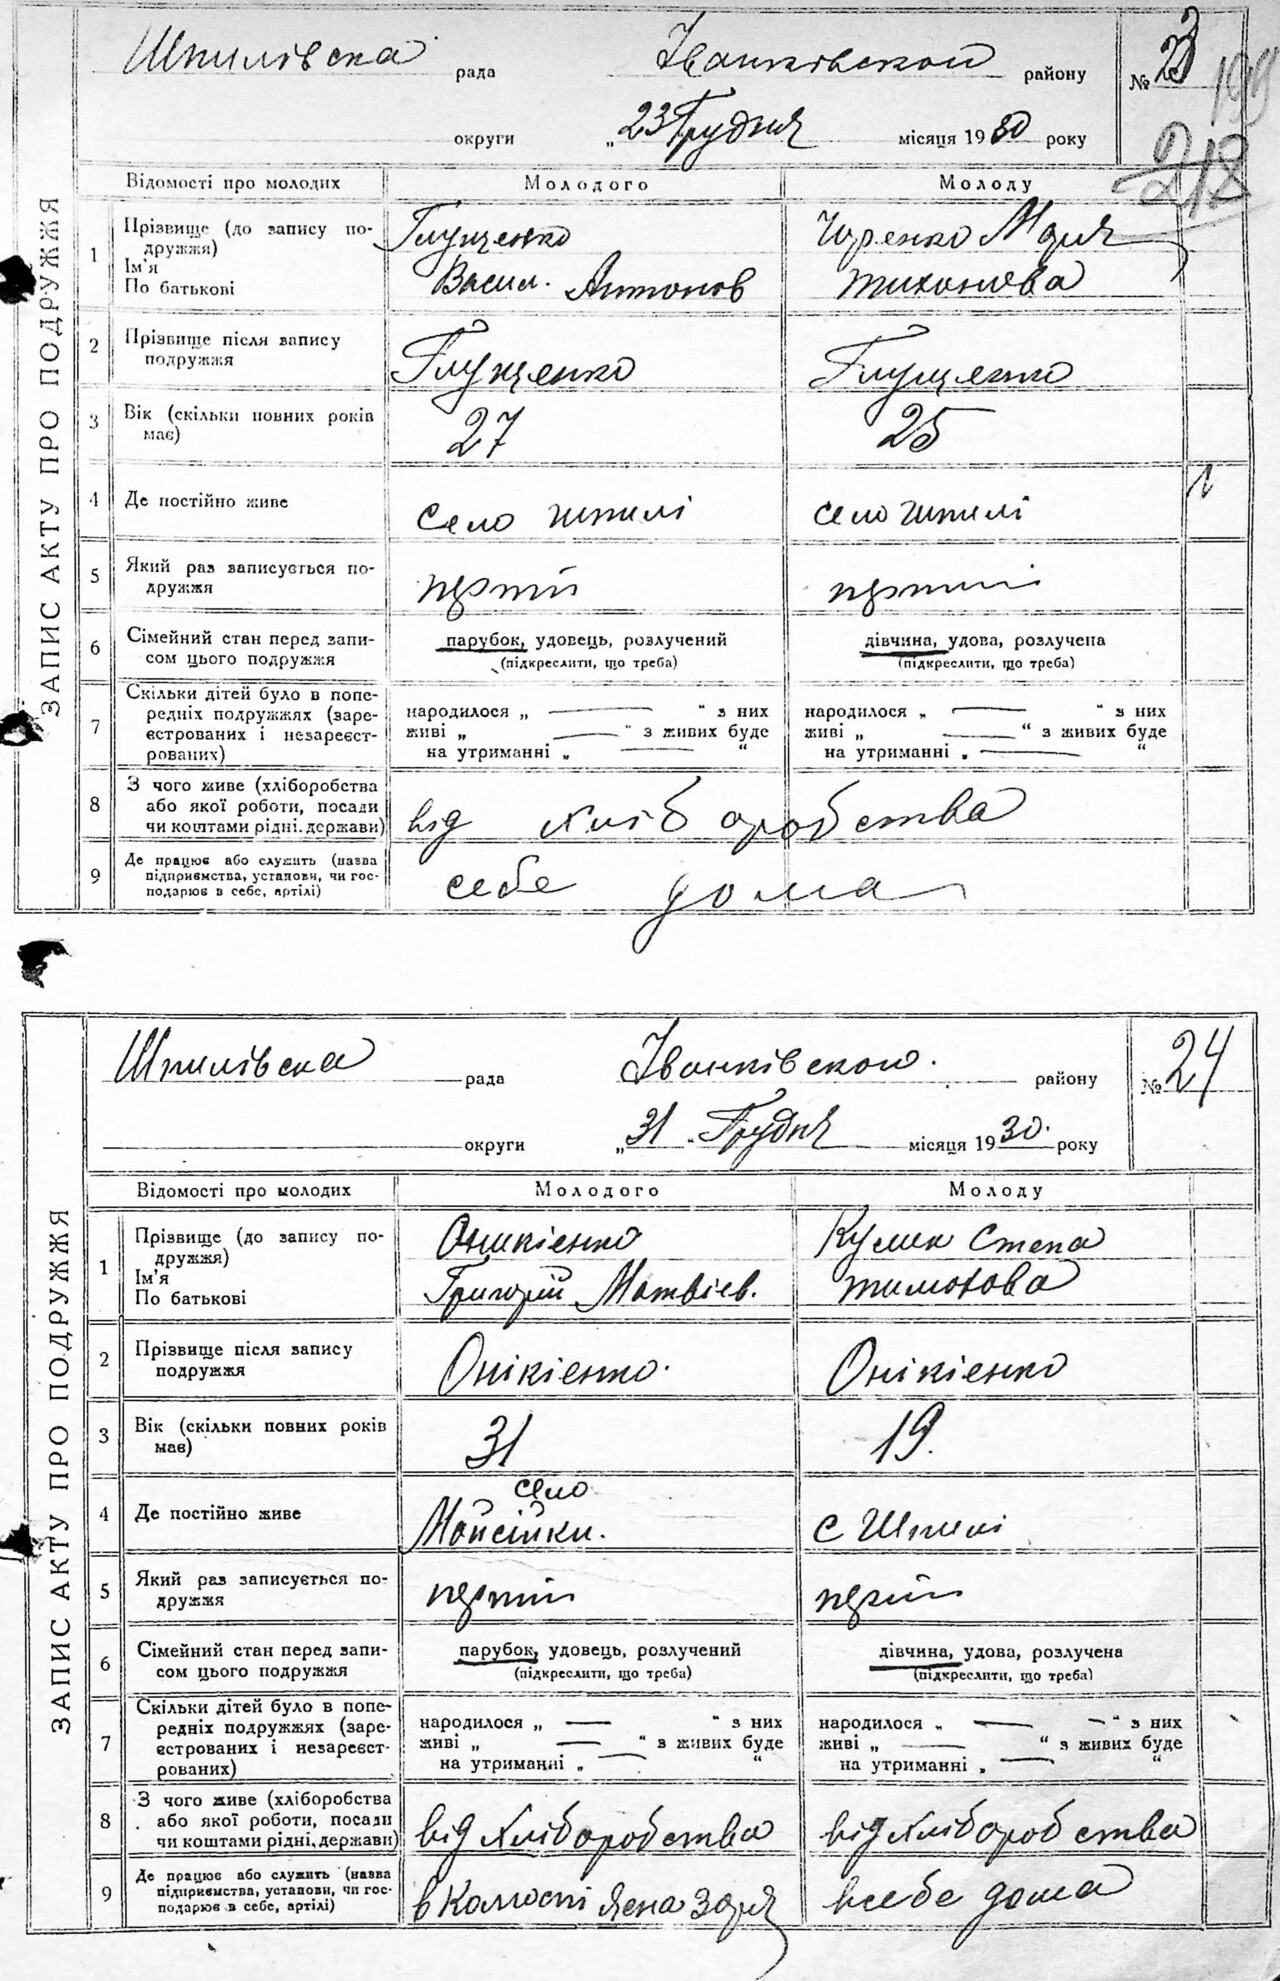 Шпилівска рада Іванківской району № 23
округи „23 Грудня місяця 1930 року
218
ЗАПИС АКТУ ПРО ПОДРУЖЖЯ
Відомості про молодих Молодого Молоду
1 Прізвище (до запису по-
дружжя)
Ім'я
По батькові
Глущенко
Васил. Антонов
Марія
Тихонова
2 Прізвище після запису
подружжя
Глущенко Глущенко
3 Вік (скільки повних років
має)
27 25
4 Де постійно живе село шпилі село шпилі
5 Який раз записується по-
дружжя
першій першій
6 Сімейний стан перед запи-
сом цього подружжя
парубок, удовець, розлучений
(підкреслити, що треба)
дівчина, удова, розлучена
(підкреслити, що треба)
7 Скільки дітей було в попе-
редніх подружжях (заре-
єстрованих і незареєст-
рованих)
народилося „ — “ з них
живі „ — “ з живих буде
на утриманні „ — “
народилося „ — “ з них
живі „ — “ з живих буде
на утриманні „ — “
8 З чого живе (хліборобства
або якої роботи, посади
чи коштами рідні, держави)
від хліборобства
9 Де працює або служить (назва
підприємства, установи, чи гос-
подарює в себе, артілі)
себе дома
Шпилівска рада Іванківскои. району № 24
округи „31 „Грудня місяця 1930. року
ЗАПИС АКТУ ПРО ПОДРУЖЖЯ
Відомості про молодих Молодого Молоду
1 Прізвище (до запису по-
дружжя)
Ім'я
По батькові
Оникієнко
Григорій Матвієв.
Кулик Степа
Тимохова
2 Прізвище після запису
подружжя
Онікієнко. Онікієнко
3 Вік (скільки повних років
має)
31 19.
4 Де постійно живе
село
Мойсійки.
с Шпилі
5 Який раз записується по-
дружжя
першій першій
6 Сімейний стан перед запи-
сом цього подружжя
парубок, удовець, розлучений
(підкреслити, що треба)
дівчина, удова, розлучена
(підкреслити, що треба)
7 Скільки дітей було в попе-
редніх подружжях (заре-
єстрованих і незареєст-
рованих)
народилося „ — “ з них
живі „ — “ з живих буде
на утриманні „ — “
народилося „ — “ з них
живі „ — “ з живих буде
на утриманні „ — “
8 З чого живе (хліборобства
або якої роботи, посади
чи коштами рідні, держави)
від хліборобства від хліборобства
9 Де працює або служить (назва
підприємства, установи, чи гос-
подарює в себе, артілі)
в Колгоспі Ясна Зоря всебе дома